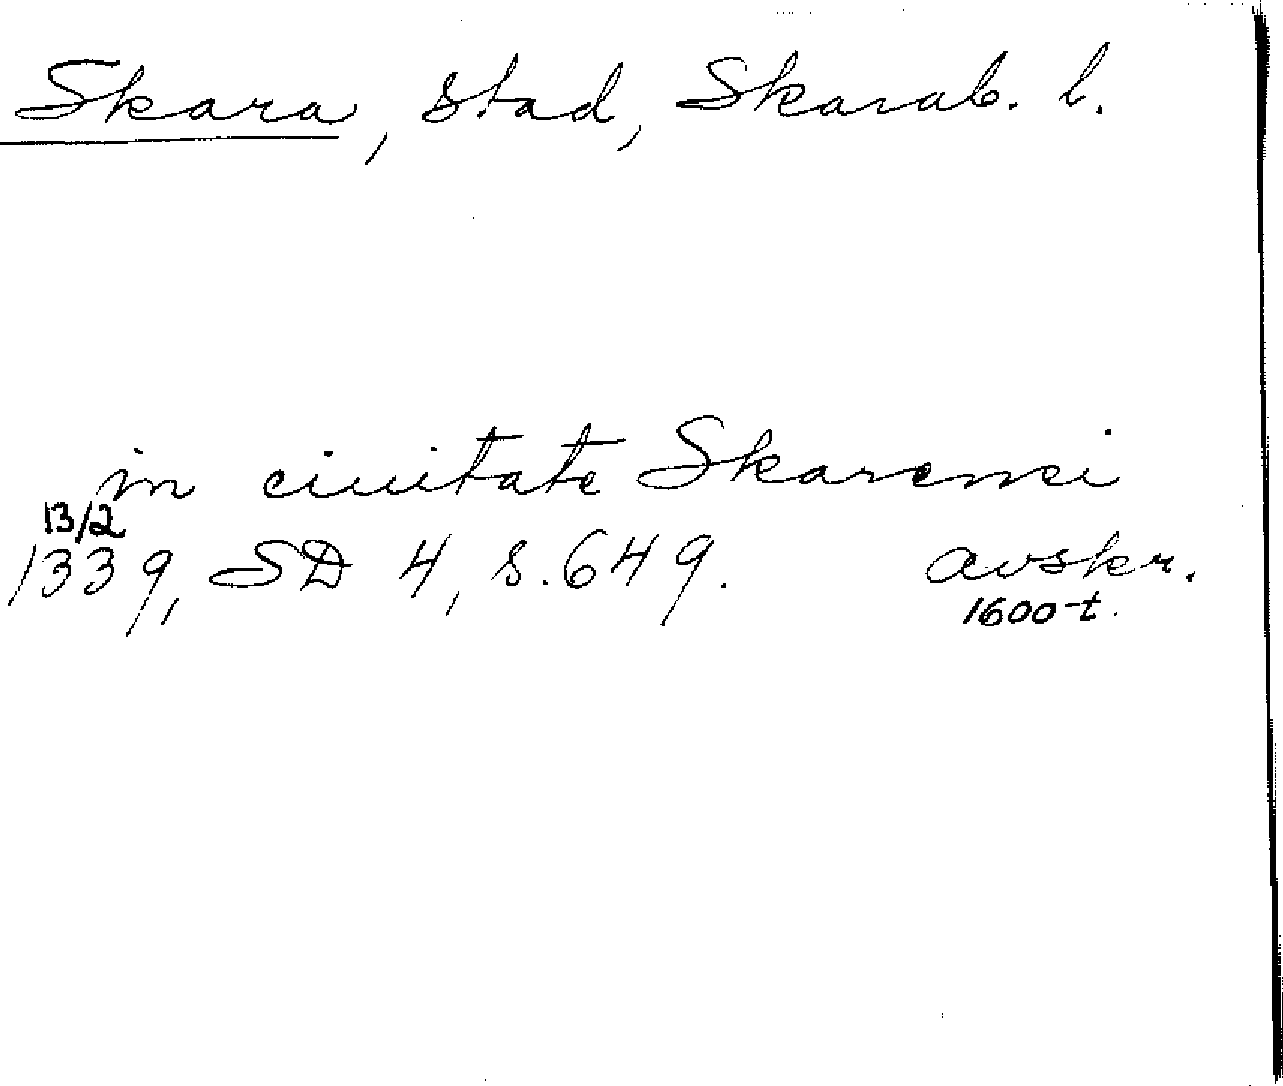 Skara, stad, Skarab. l.
in ciuitate Skarensi
13/2
1339, SD 4, s. 649. avskr.
1600-t.